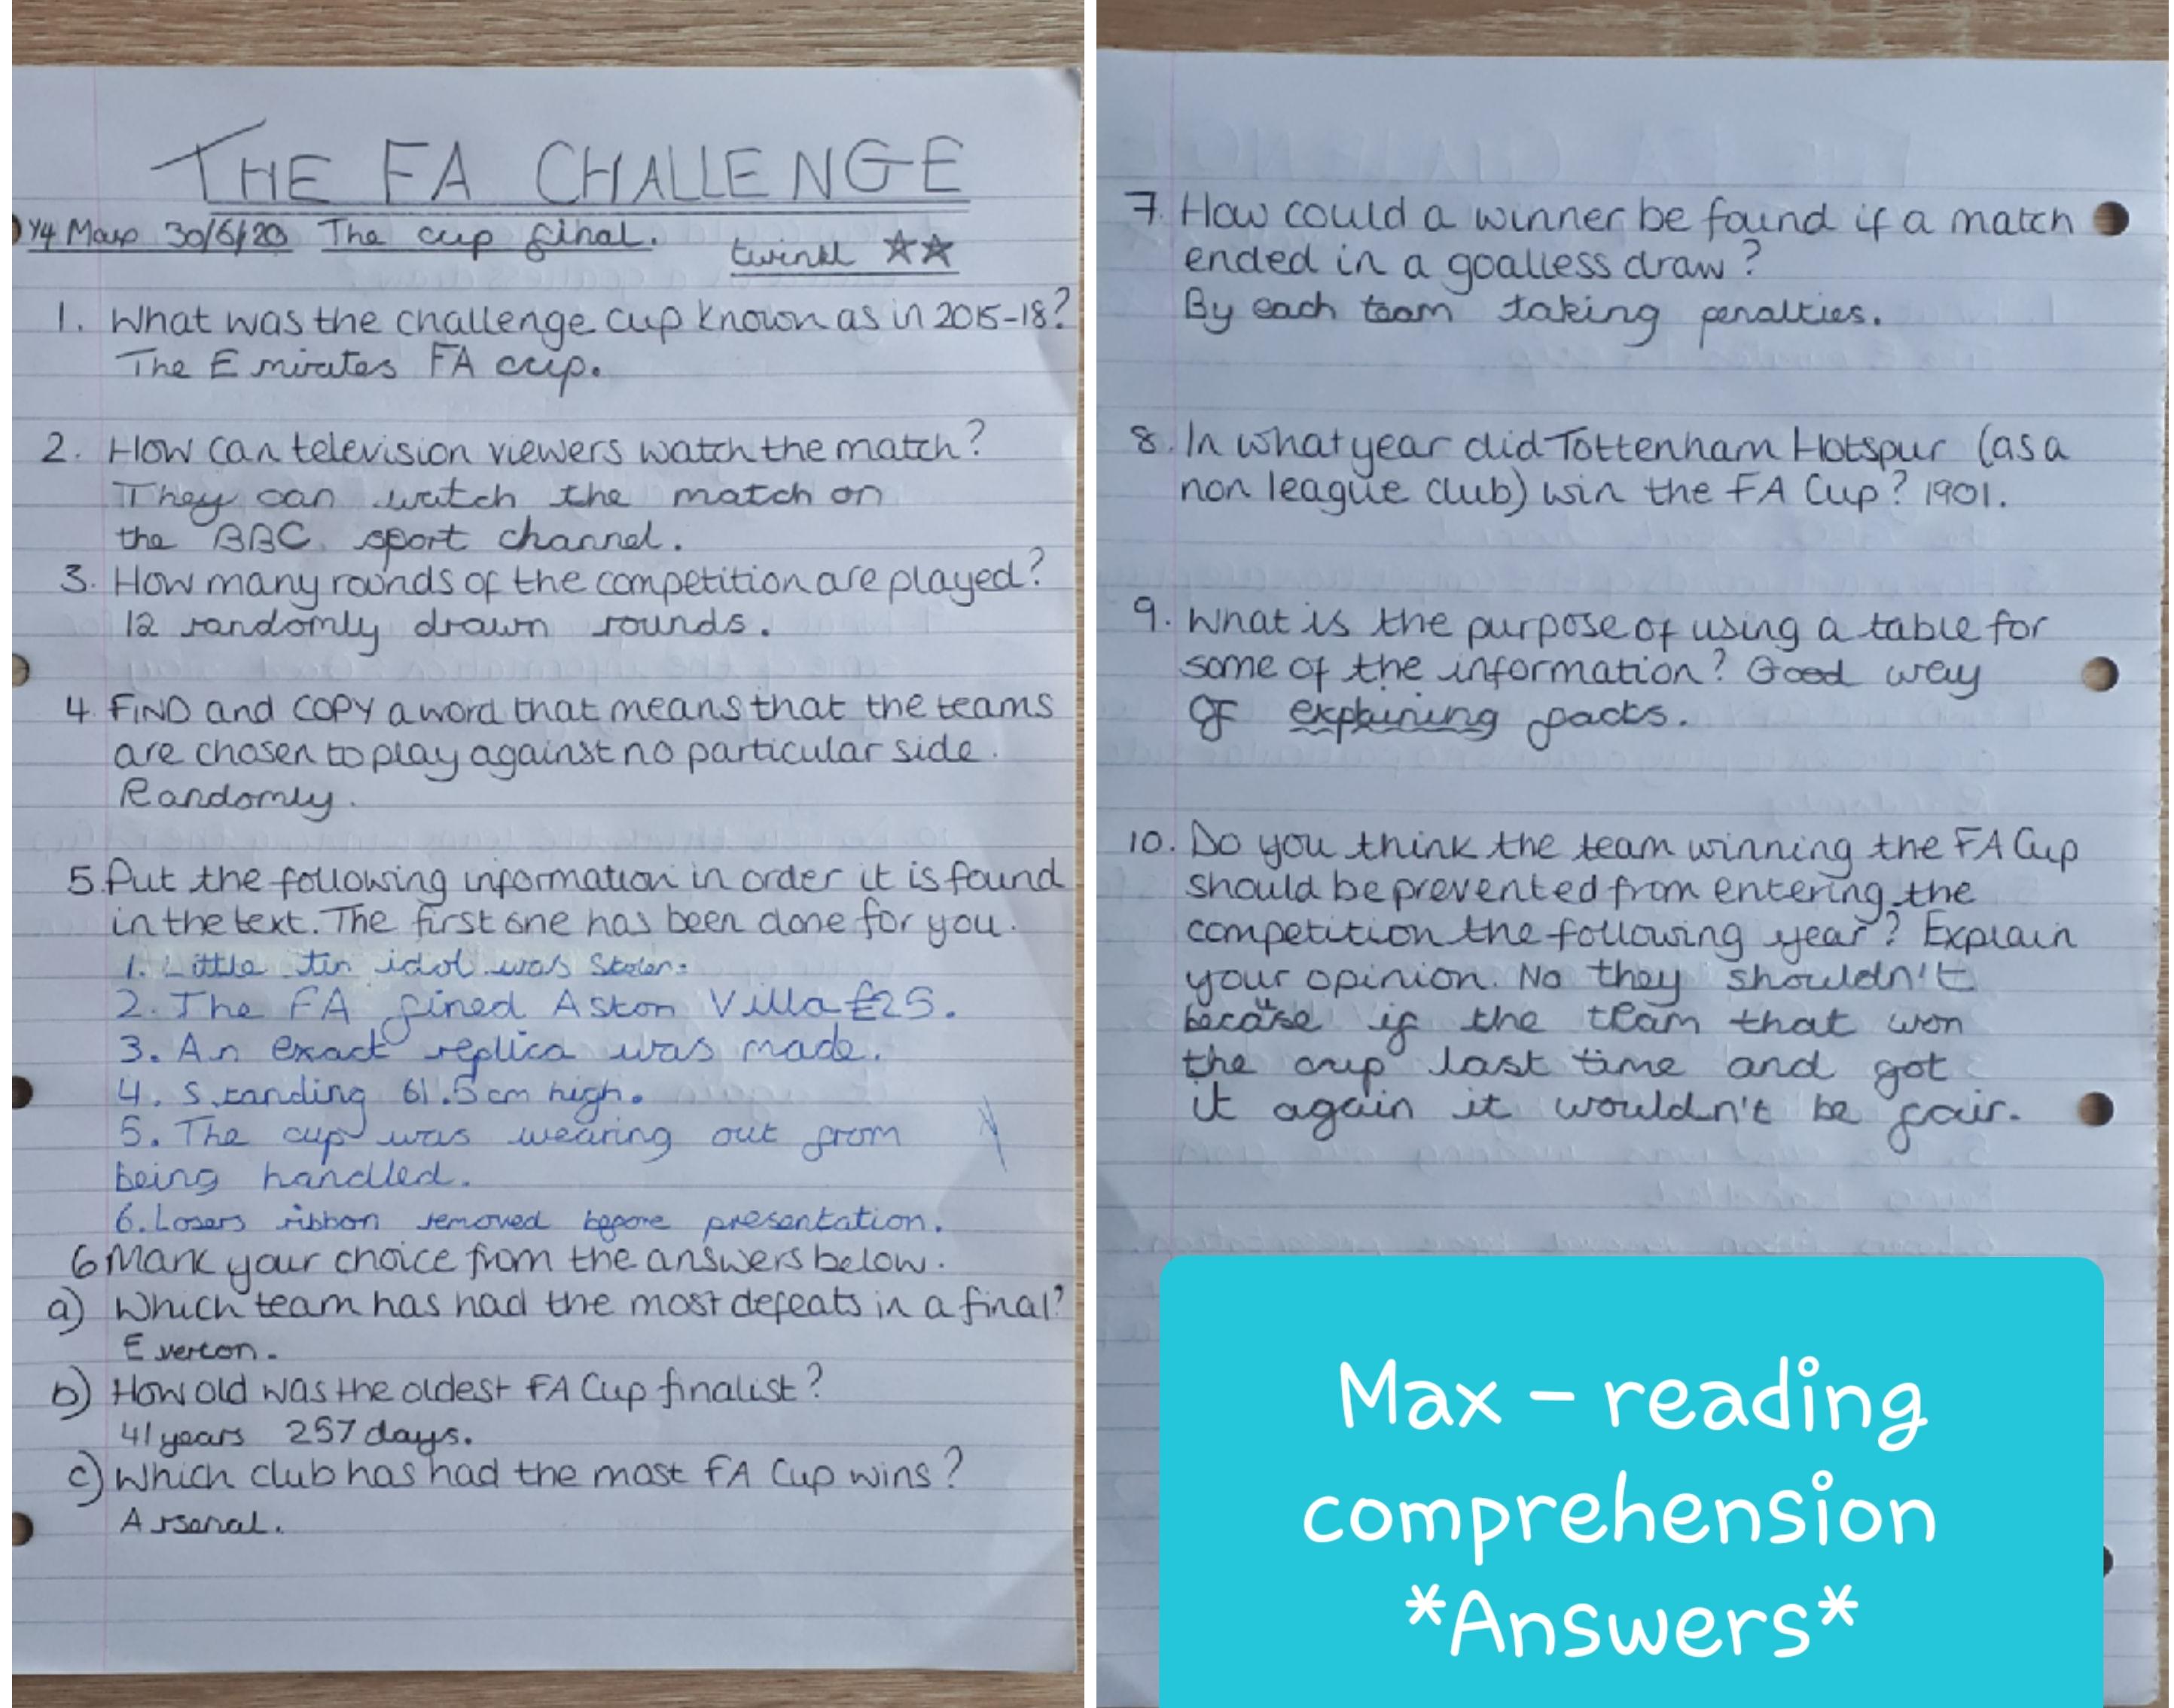 THE FA CHALLENGE
Y4 Max 30/6/20 The cup final.
twinkl ☆☆
1. What was the challenge cup known as in 2015-18?
The Emirates FA cup.
2. How can television viewers watch the match?
They can watch the match on
the BBC sport channel.
3. How many rounds of the competition are played?
12 randomly drawn rounds.
4. FIND and COPY a word that means that the teams
are chosen to play against no particular side.
Randomly.
5 Put the following information in order it is found
in the text. The first one has been done for you.
1. Little tin idol was Stolen.
2. The FA fined Aston Villa £25.
3. An exact replica was made.
4. Standing 61.5cm high.
5. The cup was wearing out from
being handled.
6. Losers ribbon removed before presentation.
6 Mark your choice from the answers below.
a) Which team has had the most defeats in a final?
Everton.
b) How old was the oldest FA Cup finalist?
41 years 257 days.
c) Which club has had the most FA Cup wins?
Arsenal.
7. How could a winner be found if a match
ended in a goalless draw?
By each team taking penalties.
8. In what year did Tottenham Hotspur (as a
non league club) win the FA Cup? 1901.
9. What is the purpose of using a table for
some of the information? Good way
of explaining facts.
10. Do you think the team winning the FA Cup
should be prevented from entering the
competition the following year? Explain
your opinion. No they shouldn't
because if the team that won
the cup last time and got
it again it wouldn't be fair.
Max – reading
comprehension
*Answers*